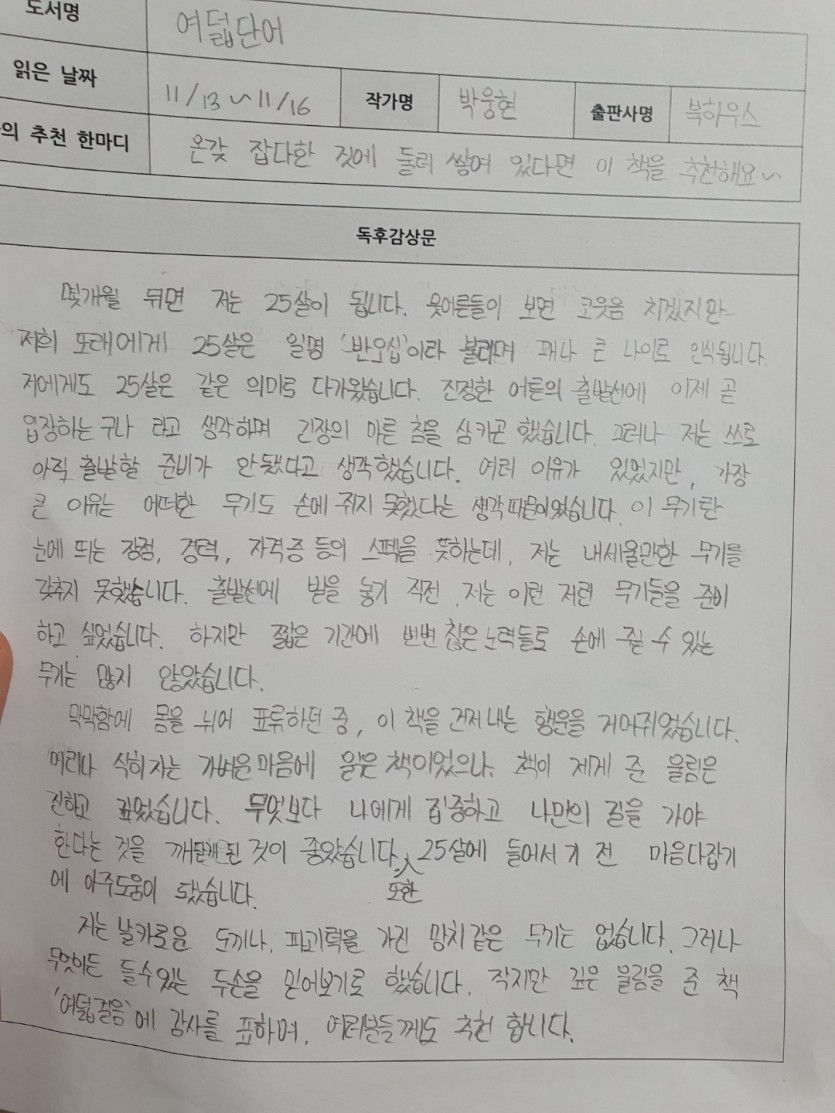 도서명 여덟단어
읽은 날짜 11/13 ~ 11/16 작가명 박웅현 출판사명 북하우스
의 추천 한마디 온갖 잡다한 것에 둘러 쌓여 있다면 이 책을 추천해요~
독후감상문
몇개월 뒤면 저는 25살이 됩니다. 윗어른들이 보면 코웃음 치겠지만
저희 또래에게 25살은 일명 '반오십'이라 불리며 꽤나 큰 나이로 인식됩니다.
저에게도 25살은 같은 의미로 다가왔습니다. 진정한 어른의 출발선에 이제 곧
입장하는 구나 라고 생각하며 긴장의 마른 침을 삼키곤 했습니다. 그러나 저는 쓰로
아직 출발할 준비가 안됐다고 생각했습니다. 여러 이유가 있었지만, 가장
큰 이유는 어떠한 무기도 손에 쥐지 못했다는 생각때문이었습니다. 이 무기란
눈에 띄는 장점, 경력, 자격증 등의 스펙을 뜻하는데, 저는 내세울만한 무기를
갖추지 못했습니다. 출발선에 발을 놓기 직전, 저는 이런 저런 무기들을 준비
하고 싶었습니다. 하지만 짧은 기간에 변변찮은 노력들로 손에 쥘 수 있는
무기는 많지 않았습니다.
막막함에 몸을 뉘어 표류하던 중, 이 책을 건져내는 행운을 거머쥐었습니다.
머리나 식히자는 가벼운 마음에 읽은 책이었으나, 책이 제게 준 울림은
진하고 깊었습니다. 무엇보다 나에게 집중하고 나만의 길을 가야
한다는 것을 깨닫게 된 것이 좋았습니다. 또한 25살에 들어서기 전 마음다잡기
에 아주도움이 됐습니다.
저는 날카로운 도끼나, 파괴력을 가진 망치같은 무기는 없습니다. 그러나
무엇이든 들수있는 두손을 믿어보기로 했습니다. 작지만 깊은 울림을 준 책
'여덟걸음'에 감사를 표하며, 여러분들께도 추천 합니다.